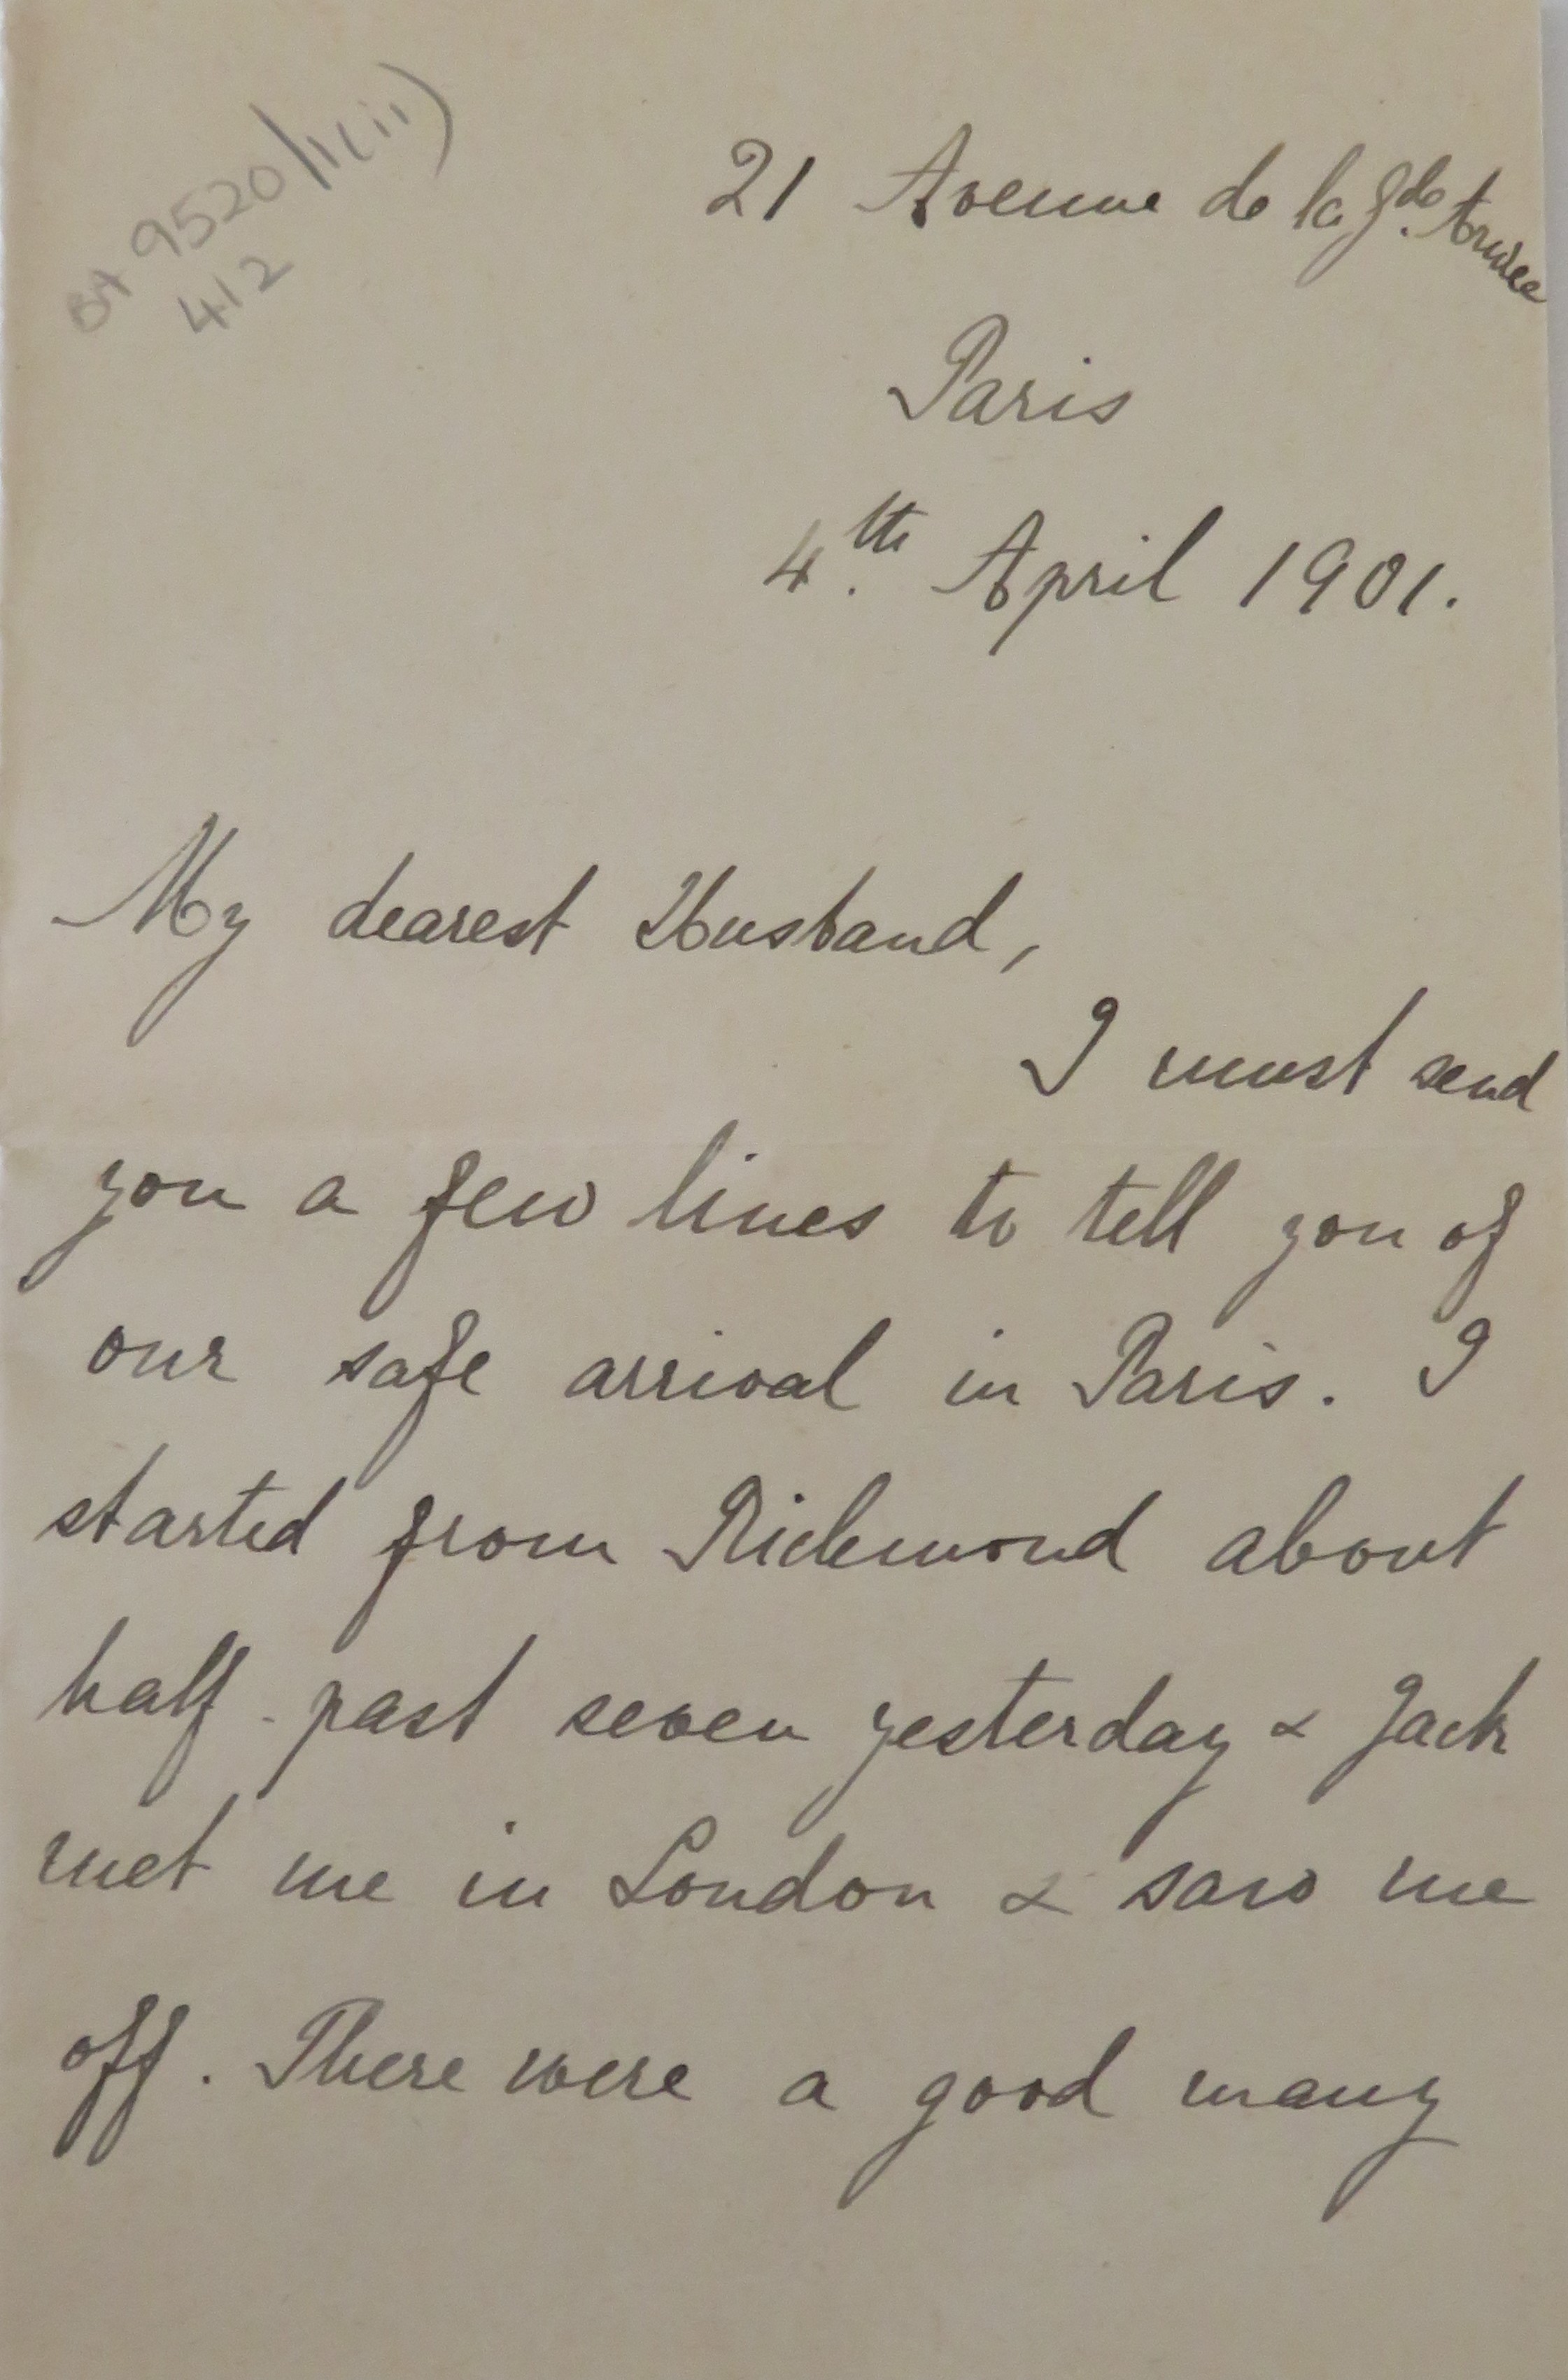 BA 9520/1(ii)
412
21 Avenue de la gde. Armée
Paris
4th. April 1901.
My dearest Husband,
I must send
you a few lines to tell you of
our safe arrival in Paris. I
started from Richmond about
half-past seven yesterday & Jack
met me in London & saw me
off. There were a good many